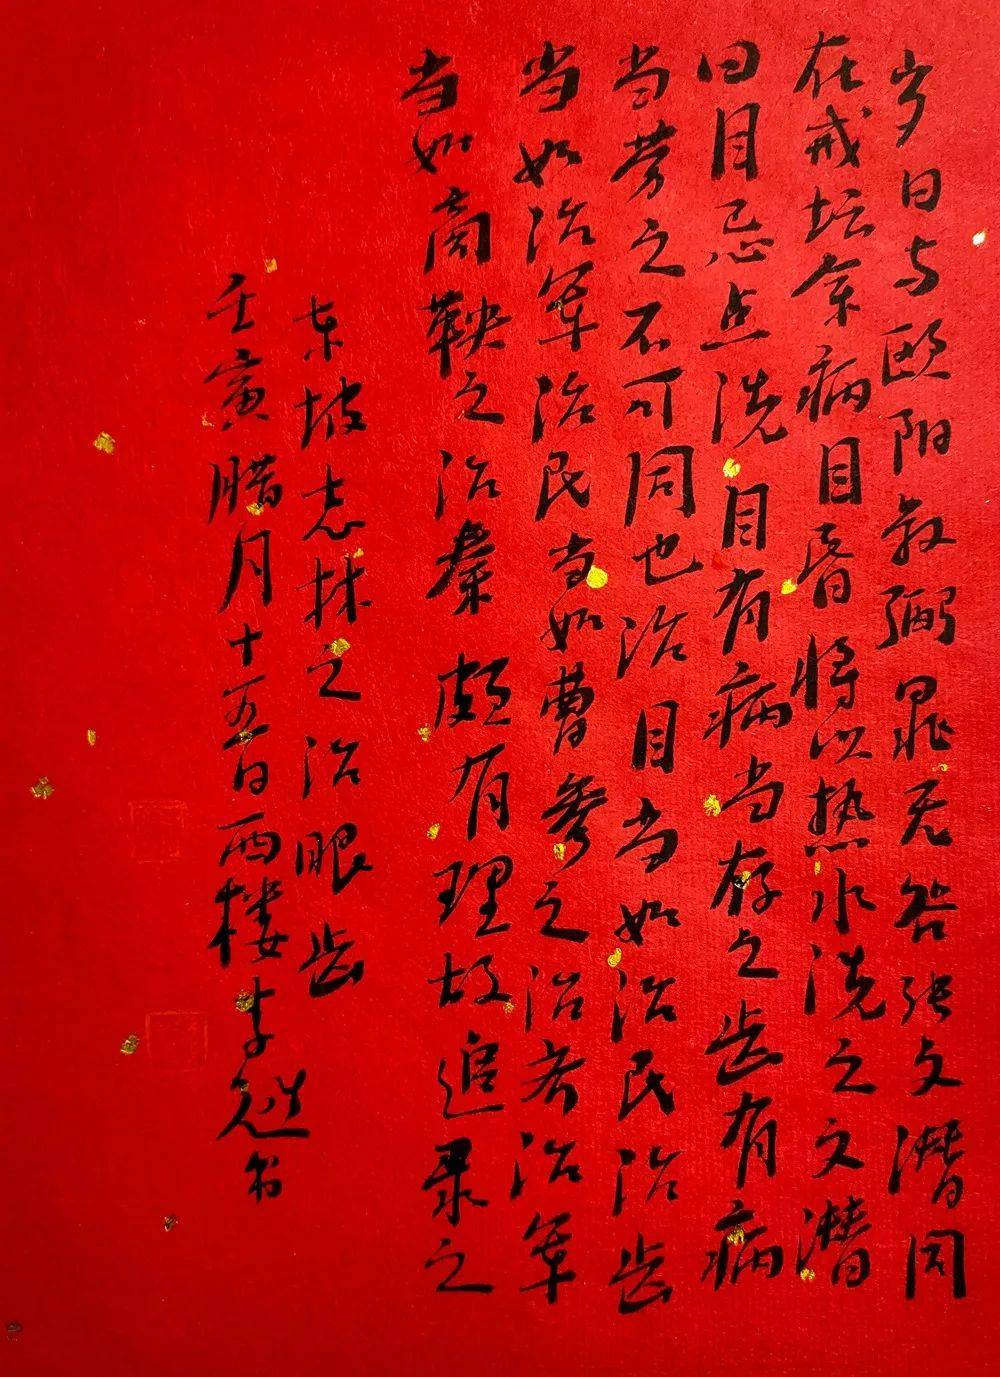 岁日与欧阳叔弼晁无咎张文潜同
在戒坛余病目昏将以热水洗之文潜
曰目忌点洗目有病当存之齿有病
当劳之不可同也治目当如治民治齿
当如治军治民当如曹参之治者治军
当如商鞅之治秦颇有理故追录之
东坡志林之治眼齿
壬寅腊月十五日西楼李
书